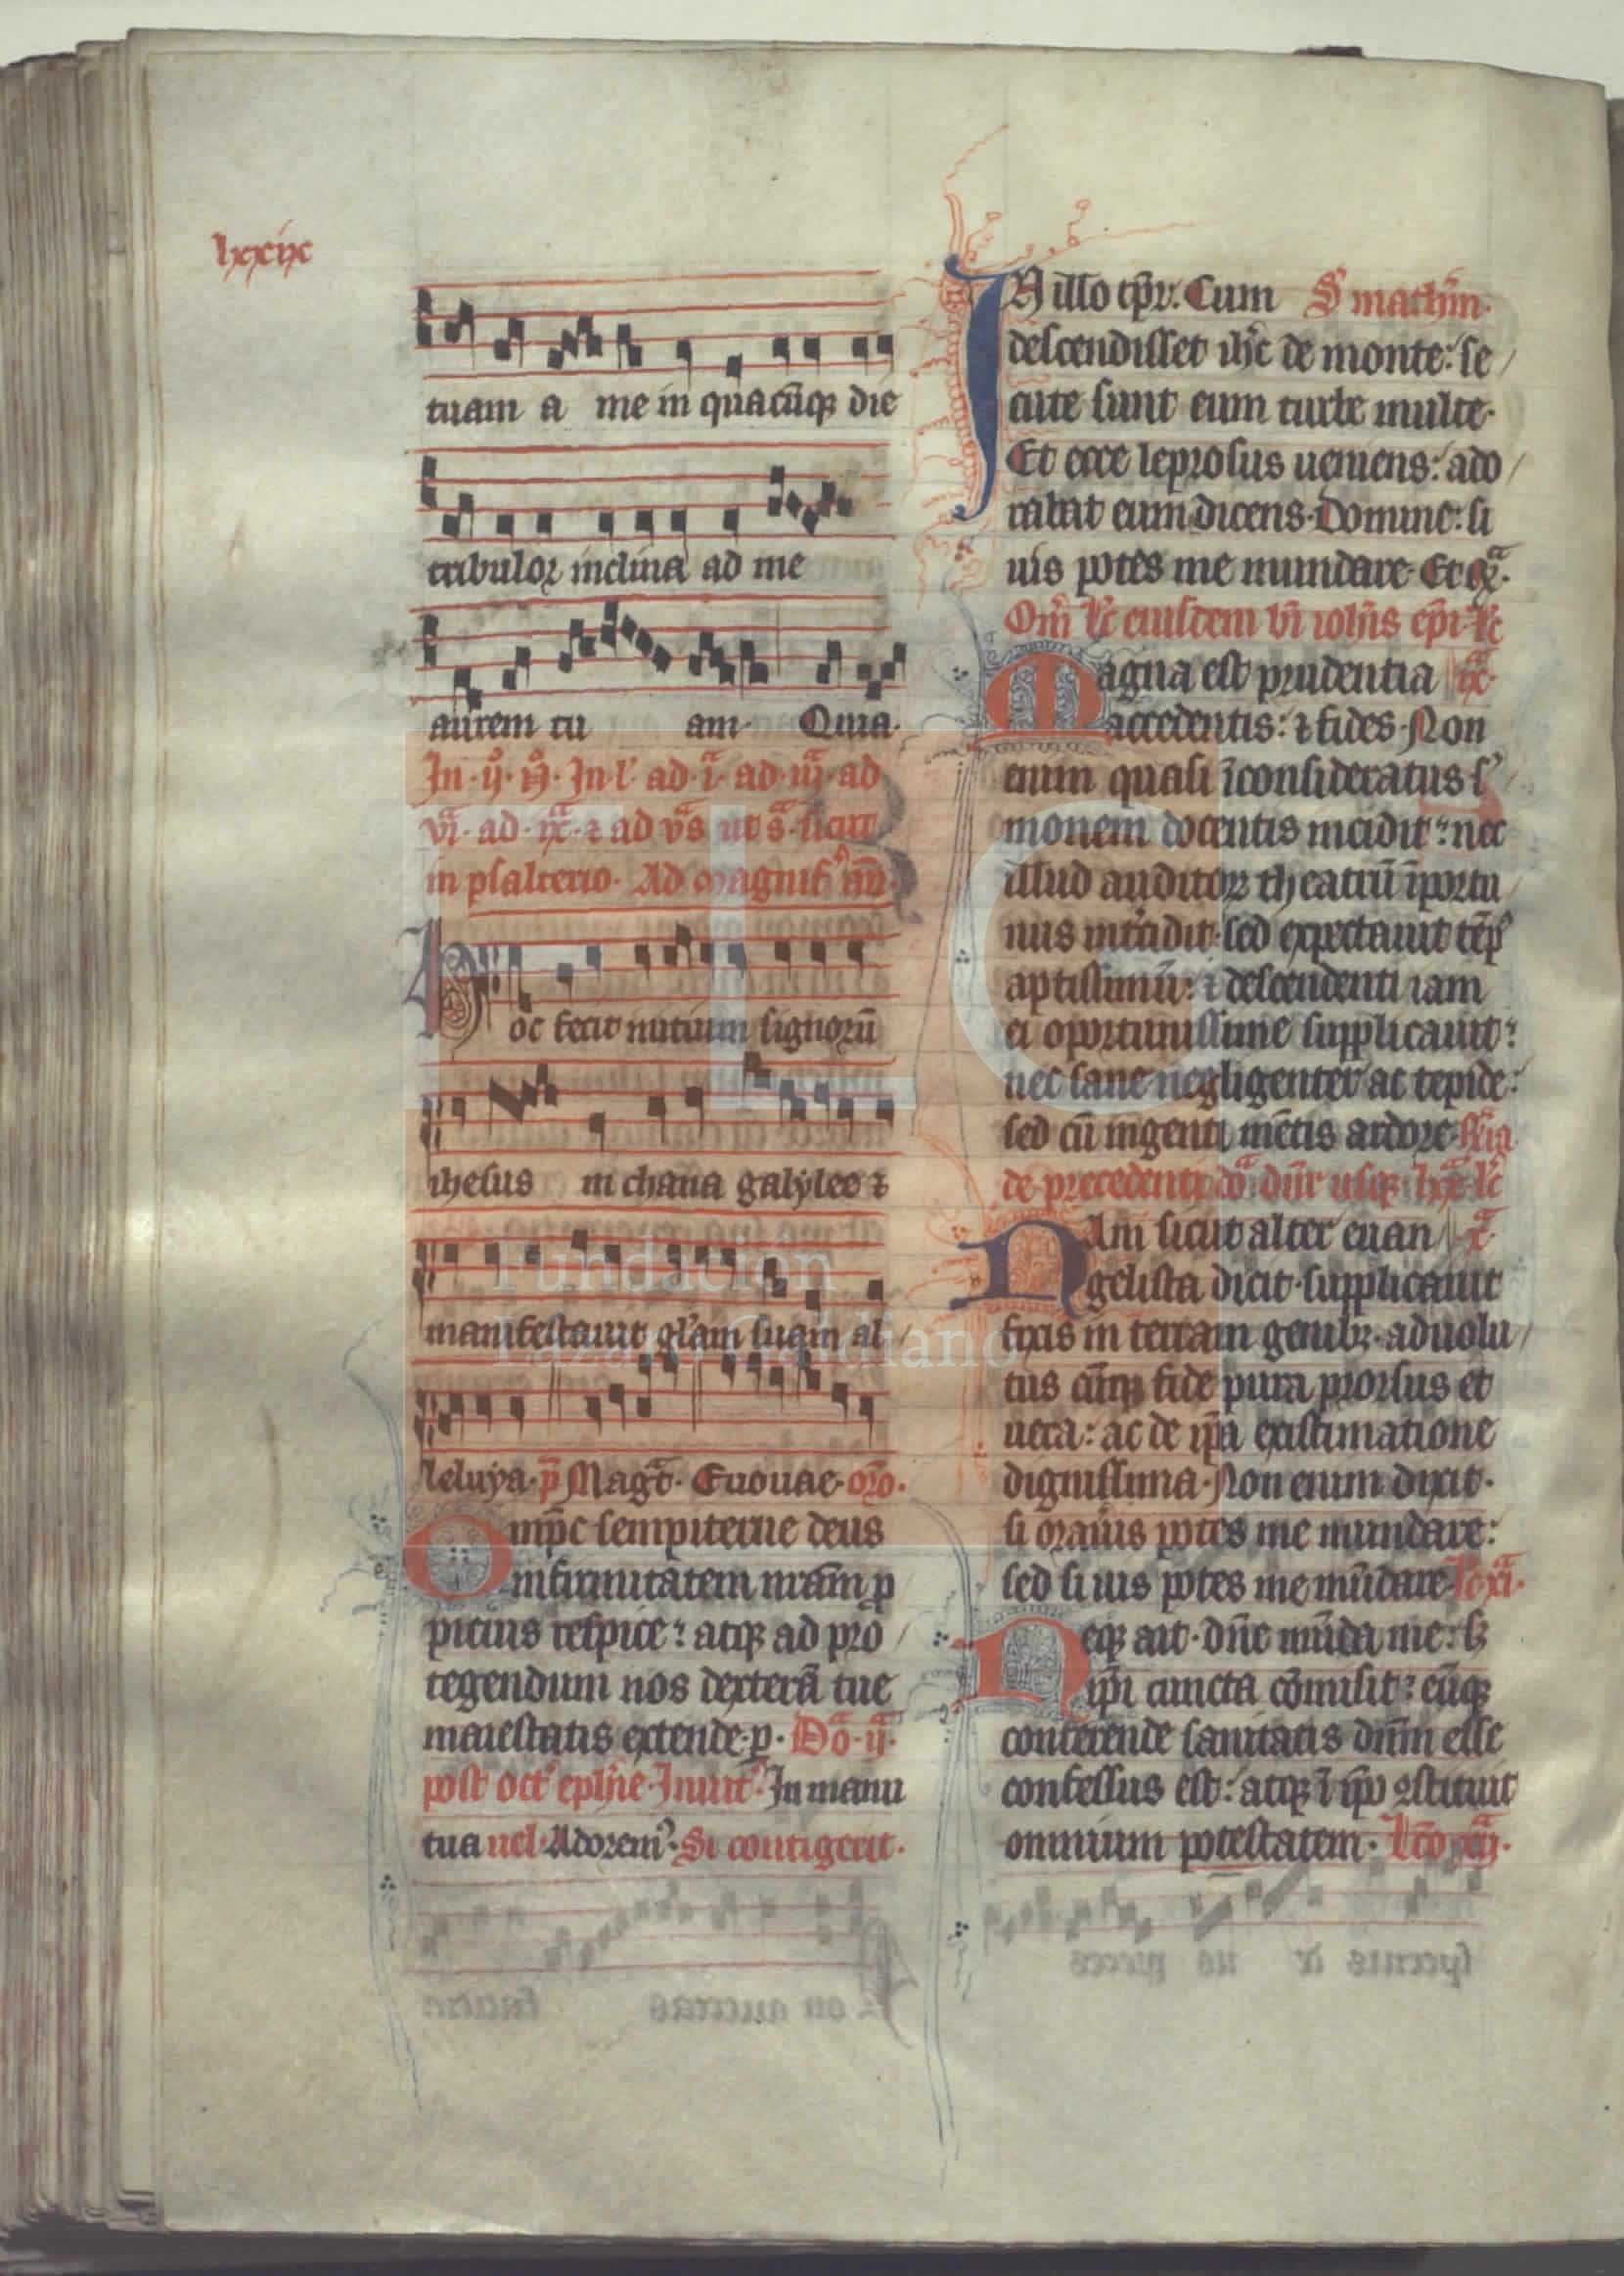 lxxix
tuam a me in quacūqꝫ die
tribulor inclina ad me
aurem tu am. Quia.
in psalterio. Ad magnif̄ añ.
Hoc fecit initium signorū
ihesus in chana galylee ⁊
manifestauit gl̄am suam al/
leluya. p̄ Magt̄. Euouae. oro.
Omp̄c sempiterne deus
infirmitatem nr̄am ꝓ
picius respice: atqꝫ ad pro/
tegendum nos dexterā tue
maiestatis extende. p. Do. ij.
post oct' ephīe. Inuit'. In manu
tua uel. Adorem'. Si contigerit.
IN illo tp̄r. Cum S' math'm.
descendisset ih'c de monte: se/
cute sunt eum turbe multe.
Et ecce leprosus ueniens: ado/
rabat eum dicens. Domine: si
uis potes me mundare. Et rꝫ.
Om̄ l'c eiusdem bī ioh'is ep̄i. l'c
Magna est prudentia ix.
accedentis: ⁊ fides. Non
enim quasi īconsideratus s'/
monem docentis incidit: nec
illud auditorꝫ theatrū īportu/
nus incidit: sed expectauit tēp'
aptissimū: ⁊ descendenti iam
ei oportunissime supplicauit:
nec sane negligenter ac tepide:
sed cū ingenti mētis ardore.
de precedenti dō. dn̄r usqꝫ lxx. l'c
Nam sicut alter euan/ x.
gelista dicit. supplicauit
fixis in terram genibꝫ. aduolu/
tus cūqꝫ fide pura prorsus et
uera: ac de ip̄a existimatione
dignissima. Non enim dixit.
si oraueris potes me mundare:
sed si uis potes me mūdare. l'c xi.
Neqꝫ ait. dn̄e mūda me: sꝫ
ip̄i cuncta cōmisit: eūqꝫ
conferende sanitatis dn̄m esse
confessus est: atqꝫ ī ip̄o ꝯstituit
omnium potestatem. L'co xij.